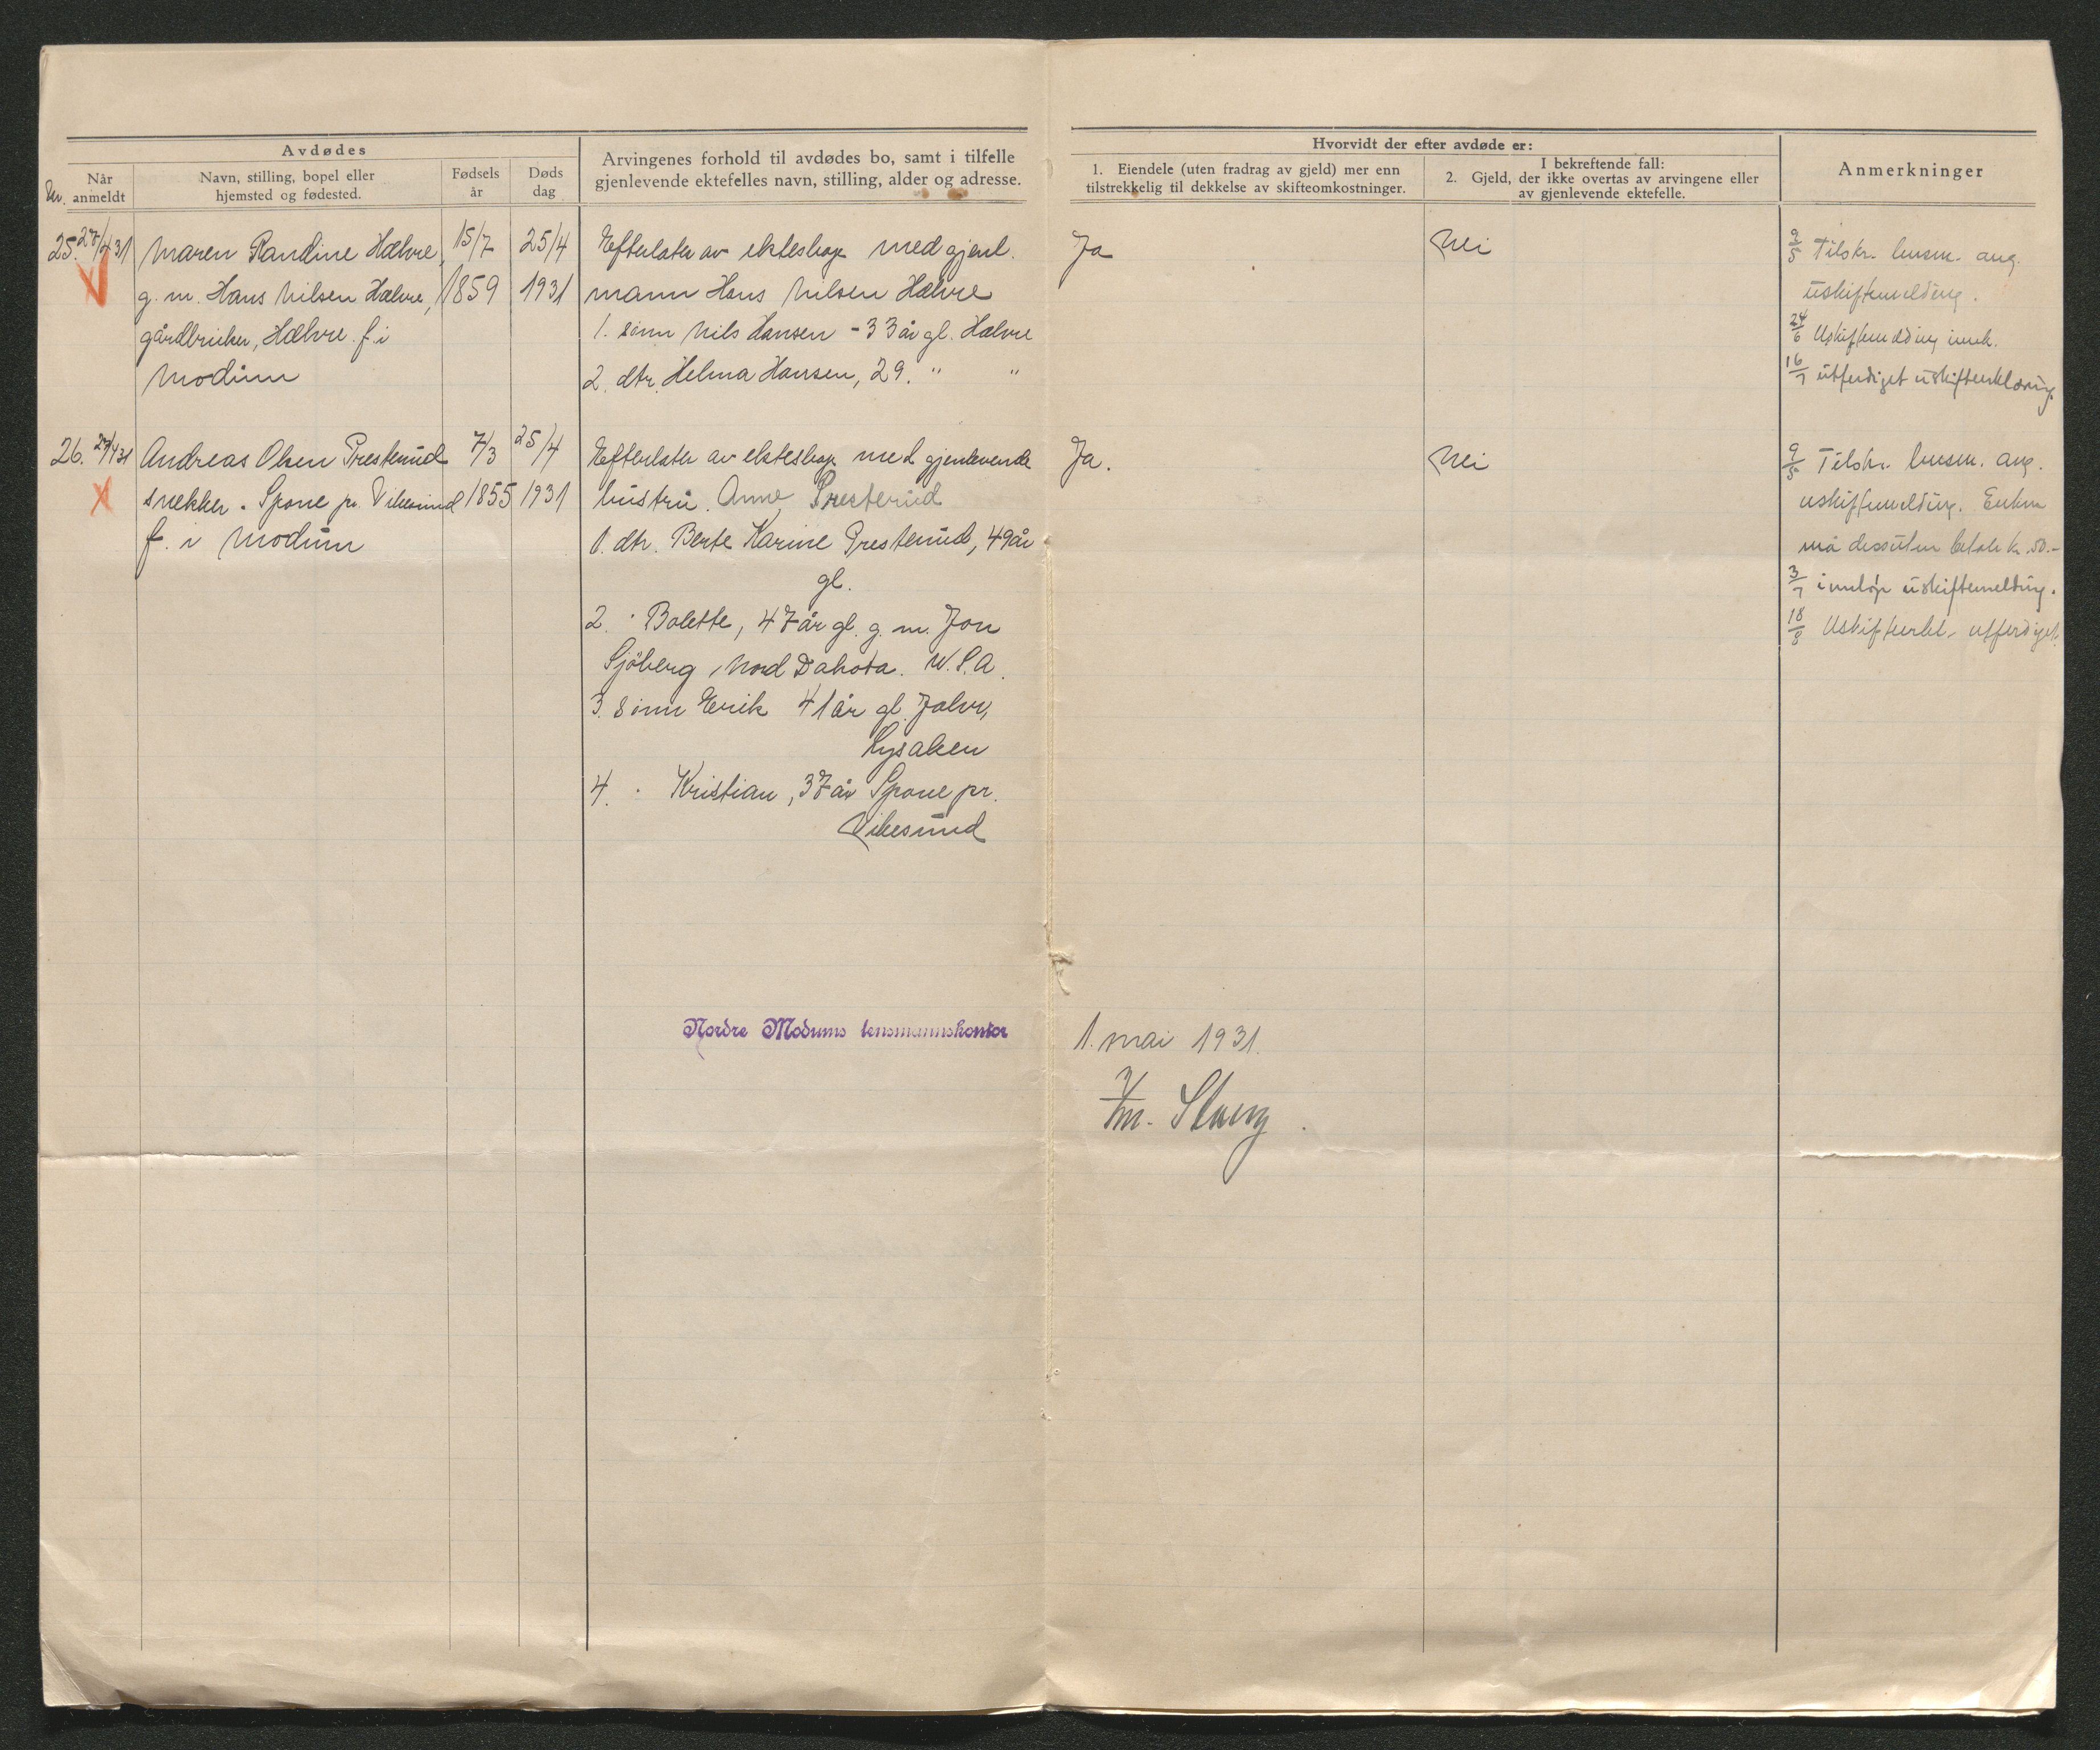 Avdødes
Nr.
Når anmeldt
Navn, stilling, bopel eller
hjemsted og fødested.
Fødsels
år
Døds
dag
Arvingenes forhold til avdødes bo, samt i tilfelle
gjenlevende ektefelles navn, stilling, alder og adresse.
Hvorvidt der efter avdøde er:
1. Eiendele (uten fradrag av gjeld) mer enn
tilstrekkelig til dekkelse av skifteomkostninger.
I bekreftende fall:
2. Gjeld, der ikke overtas av arvingene eller
av gjenlevende ektefelle.
Anmerkninger
25. 27/4 31
Maren Randine Hælvre,
g. m. Hans Nilsen Hælvre,
gårdbruker, Hælvre. f. i
Modum
15/7
1859
25/4
1931
Efterlater av ekteskap med gjenl.
mann Hans Nilsen Hælvre
1. sønn Nils Hansen - 33 år gl. Hælvre
2. dtr. Helma Hansen, 29. " "
Ja
Nei
9/5 Tilskr. lensm. ang.
uskiftemelding.
24/6 Uskiftemelding innk.
16/7 utferdiget uskifteerklæring.
26. 27/4 31
Andreas Olsen Presterud
snekker. Spone pr. Vikesund
f. i Modum
7/3
1855
25/4
1931
Efterlater av ekteskap med gjenlevende
hustru. Anne Presterud
1. dtr. Berte Karine Presterud, 49 år
gl.
2. " Bolette, 47 år gl. g. m. Jon
Sjöberg, Nord Dakota. U.S.A.
3. sønn Erik 41 år gl.
Lysaken
4. " Kristian, 37 år Spone pr.
Vikesund
Ja.
Nei
9/5 Tilskr. lensm. ang.
uskiftemelding. Enken
må dessuten betale kr. 50.-
3/7 innløp uskiftemelding.
18/8 Uskifteerkl. utferdiget.
Nordre Modums lensmannskontor
1. mai 1931.